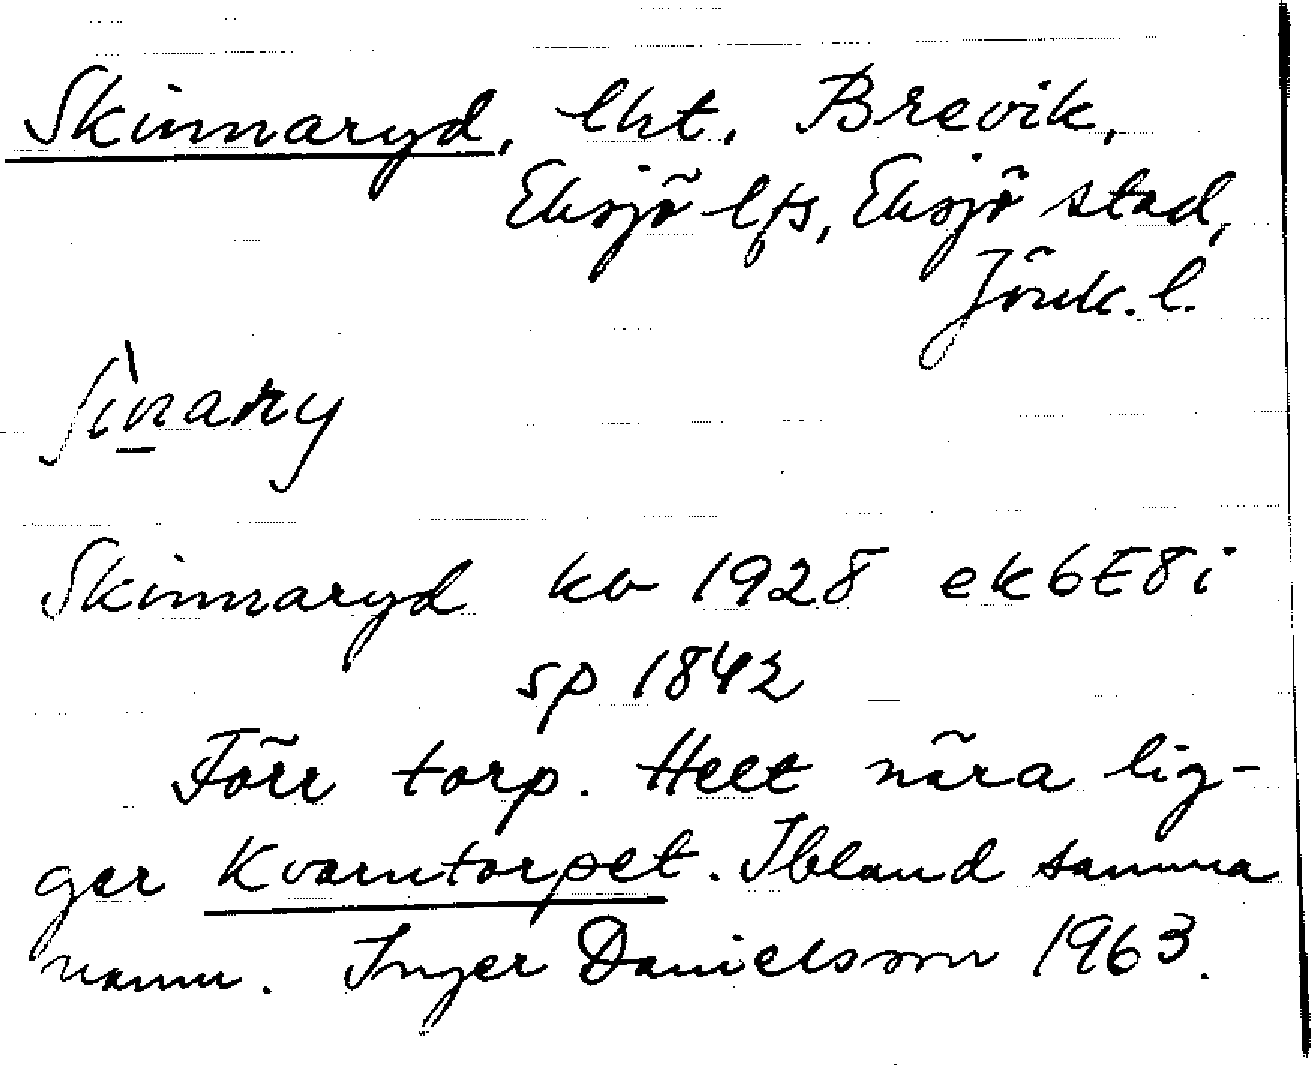 Skinnaryd, lht. Brevik,
Eksjö lfs, Eksjö stad,
Jönk. l.
ʃìnary
Skinnaryd ko 1928 ek6E8i
sp 1842
Förr torp. Helt nära lig-
ger Kvarntorpet. Ibland samma
namn. Inger Danielsson 1963.